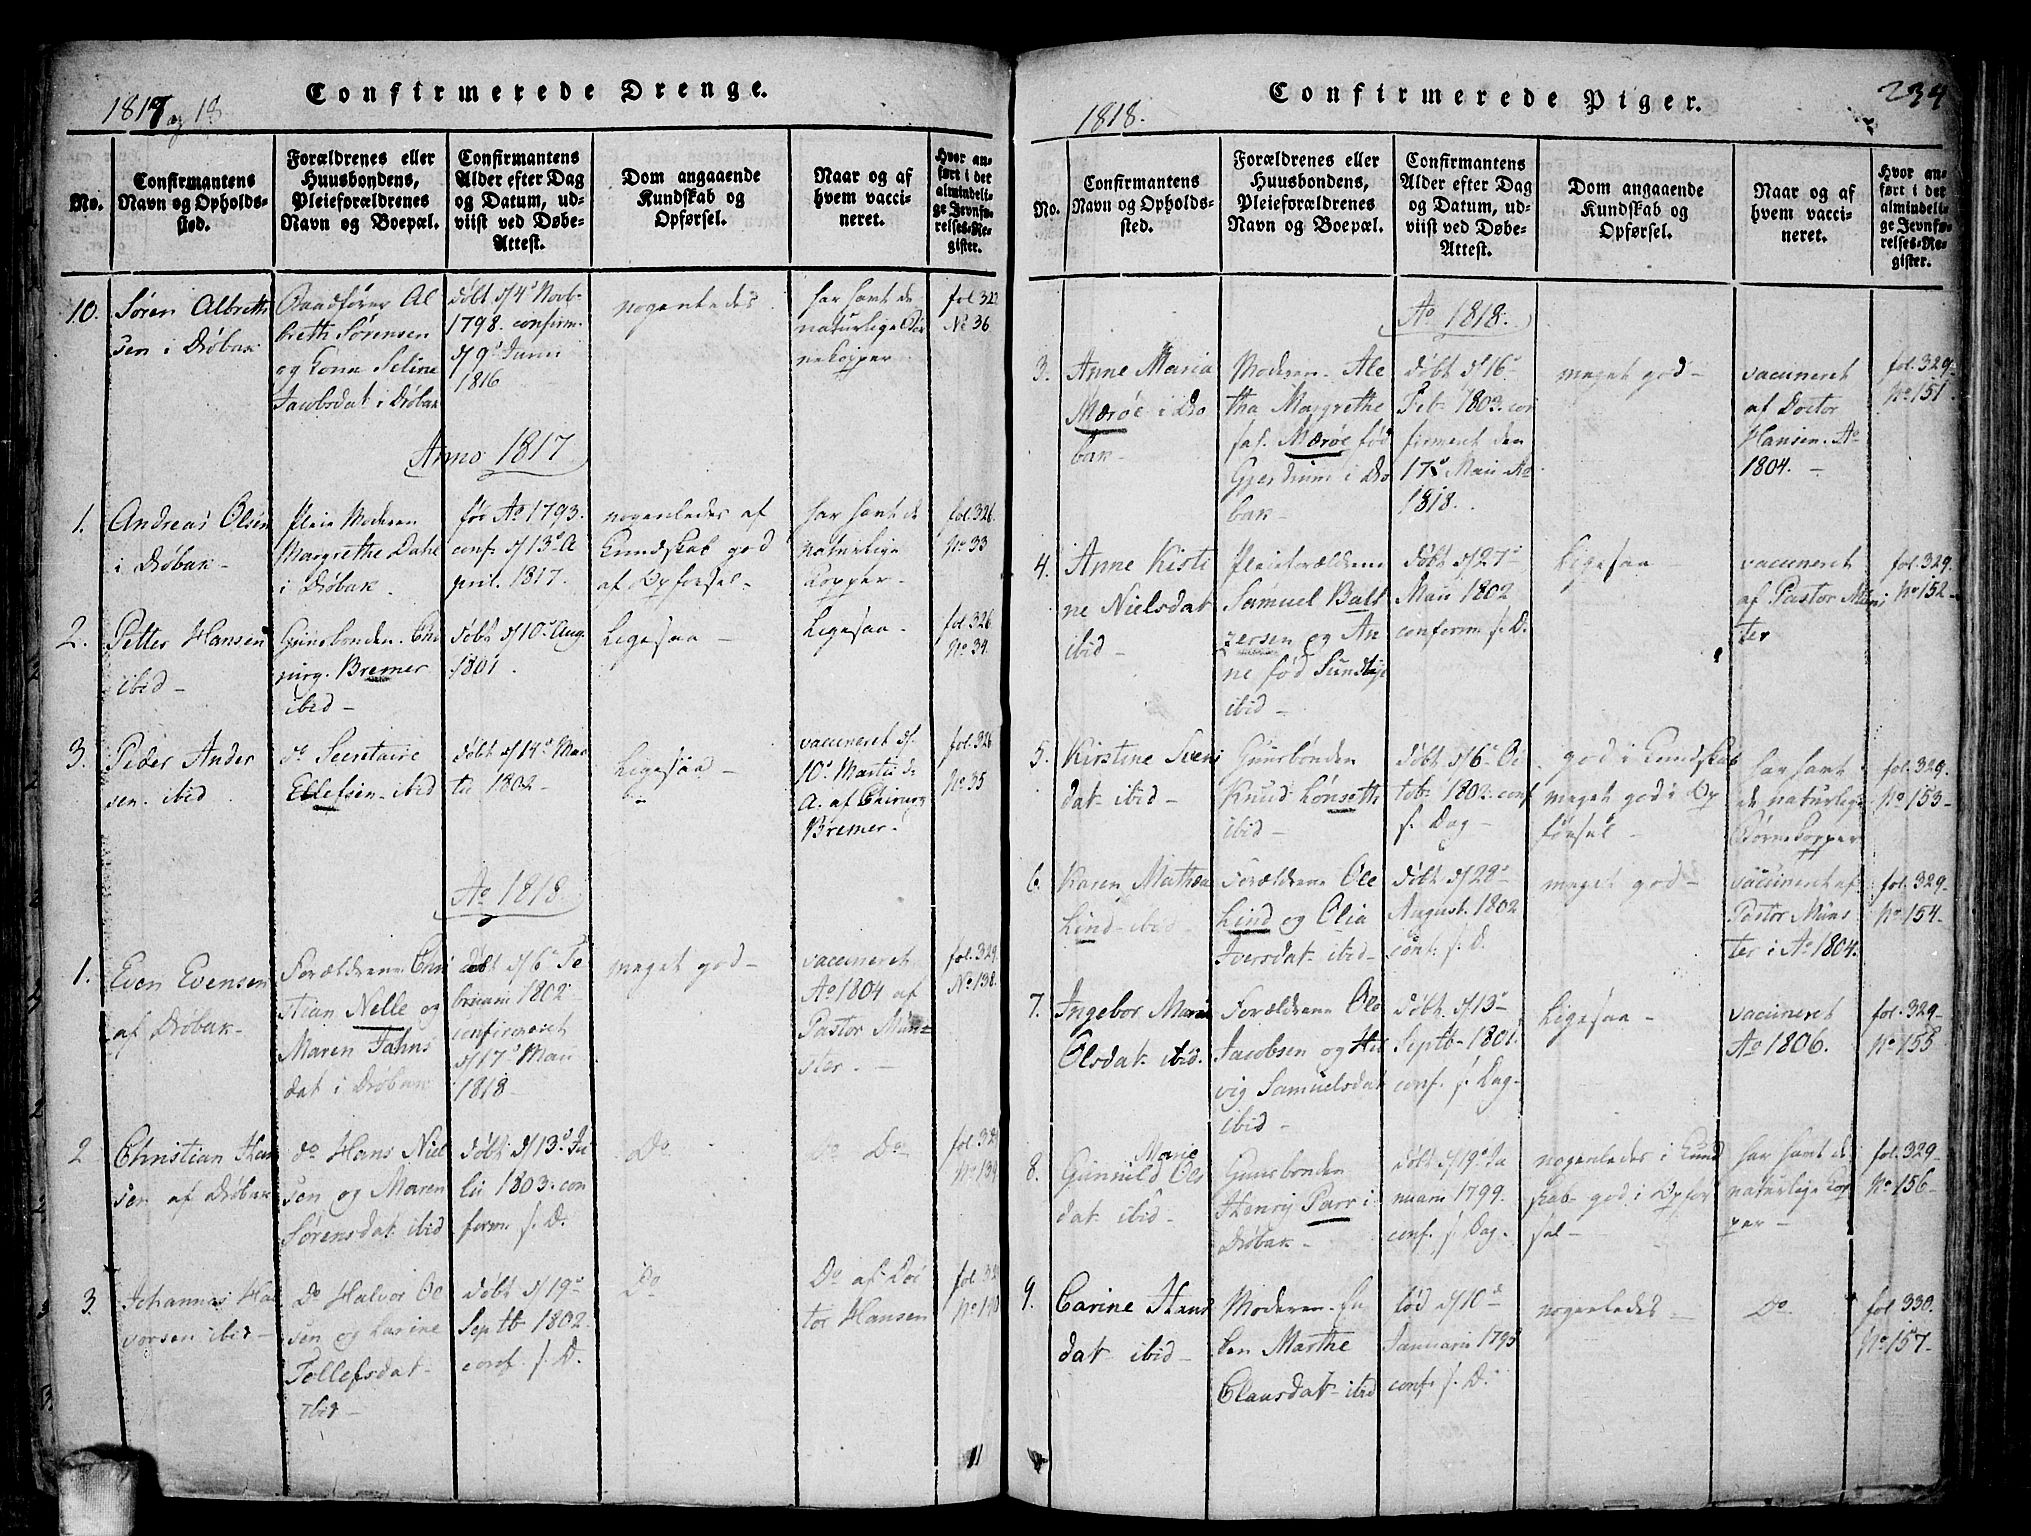 1817 og 18
Confirmerede Drenge.
No.
Confirmantens
Navn og Opholds-
sted.
Forældrenes eller
Huusbondens,
Pleieforældrenes
Navn og Boepæl.
Confirmantens
Alder efter Dag
og Datum, ud-
viist ved Døbe-
Attest.
Dom angaaende
Kundskab og
Opførsel.
Naar og af
hvem vacci-
neret.
Hvor an-
ført i det
almindeli-
ge Jevnfø-
relses-Re-
gister.
10.
Søren Albreth
sen i Drøbak
Al
breth Sørensen
og Kona Seline
Jacobsdat i Drøbak
døbt d/4 Novb-
1798. confirm.
d/9d Junii
1816
nogenledes
har havt de
naturlige Bør
nekopper
fol 322
No 36
Anno 1817
1.
Andreas Olsen
i Drøbak-
Pleie Moderen
Margrethe Dahl
i Drøbak
før Ao 1793.
conf. d/13d A
pril. 1817.
nogenledes af
Kundskab god
af Opførsel-
har havt de
naturlige
Kopper-
fol. 326.
No 33
2.
Petter Hansen
ibid-
Huusbonden. Chi
rurg. Bremer
ibid-
døbt d/10d Aug.
1801.
Ligesaa-
Ligesaa-
fol. 326
No 34.
3.
Peder Ander
sen. ibid
do Secretaire
Ellefsen- ibid
døbt d/14d Mar
tii 1802-
Ligesaa-
vaccineret d/
10d Martii d.
A. af Chirurg
Bremer-
fol. 326
No 35
Ao 1818.
1.
Even Evensen
af Drøbak-
Forældrene Chri
stian Nelle og
Maren Jahns
dat i Drøbak
døbt d/6d Fe
bruarii 1802-
confirmeret
d/17d Maii
1818-
meget god-
vaccineret
Ao 1804 af
Pastor Mün-
ster.-
fol. 329.
No 138.
2
Christian Han
sen af Drøbak
do Hans Niel
sen og Maren
Sørensdat ibid
døbt d/13d Ju
lii 1803. con
firm. s. D.
Do
Do Do
fol. 329
No 139
3.
Johannes Hal
vorsen ibid-
Do Halvor Ol
sen og Karine
Tollefsdat-
ibid-
døbt d/19d
Septb 1802.
conf. s. D.
Do
Do af Doc
tor Hansen
fol. 329
No 140
Confirmerede Piger.
234
1818.
No.
Confirmantens
Navn og Opholds-
sted.
Forældrenes eller
Huusbondens,
Pleieforældrenes
Navn og Boepæl.
Confirmantens
Alder efter Dag
og Datum, ud-
viist ved Døbe-
Attest.
Dom angaaende
Kundskab og
Opførsel.
Naar og af
hvem vacci-
neret.
Hvor an-
ført i det
almindeli-
ge Jevnfø-
relses-Re-
gister.
Ao 1818.
3.
Anne Maria
Mærøe i Drø
bak-
Moderen- Ale
tha Margrethe
sal. Mærøe fød
Gjerdrum i Drø
bak-
døbt d/16d
Feb- 1803. con
firmeret den
17d Maii Ao
1818.
meget god-
vaccineret
af Doctor
Hansen. Ao
1804.-
fol. 329-
No 151.
4.
Anne Kirsti
ne Nielsdat
ibid-
Pleieforældrene
Samuel Balt
zersen og An
ne fød Sundbye
ibid-
døbt d/27d
Maii 1802
confirm s. D.
Ligesaa-
vaccineret
af Pastor Müns
ter
fol. 329.
No 152-
5.
Kirstine Svens
dat- ibid-
Huusbonden
Knud Lønseth
ibid-
døbt d/6d Oc
tobr 1802. conf
s. Dag-
god i Kundskab
meget god i Op
førsel-
har havt
de naturlige
Børnekopper
fol. 329.
No 153-
6.
Karen Mathea
Lind- ibid-
Forældrene Ole
Lind og Olia
Iversdat- ibid-
døbt d/29d
August. 1802
conf. s. D.
meget god-
vaccineret af
Pastor Müns
ter i Ao 1804.
fol. 329-
No 154-
7.
Ingebor Maria
Olsdat- ibid.
Forældrene Ole
Jacobsen og Hel
vig Samuelsdat
ibid-
døbt d/13d
Septb- 1801.
conf. s. Dag-
Ligesaa-
vaccineret
Ao 1806.
fol. 329-
No 155
8.
Marie
Gunnild Ols
dat- ibid-
Huusbonden
Henry Parr i
Drøbak-
døbt d/19d Ja
nuarii 1799.
conf. s. Dag.
nogenledes i Kund
skab- god i Opfør
sel-
har havt de
naturlige Kop
per-
fol. 329-
No 156-
9.
Carine Hans
dat- ibid-
Moderen- En
ken Marthe
Clausdat- ibid
fød d/10d
Januarii 1795
conf. s. D.
nogenledes-
Do
fol 330.
No 157-